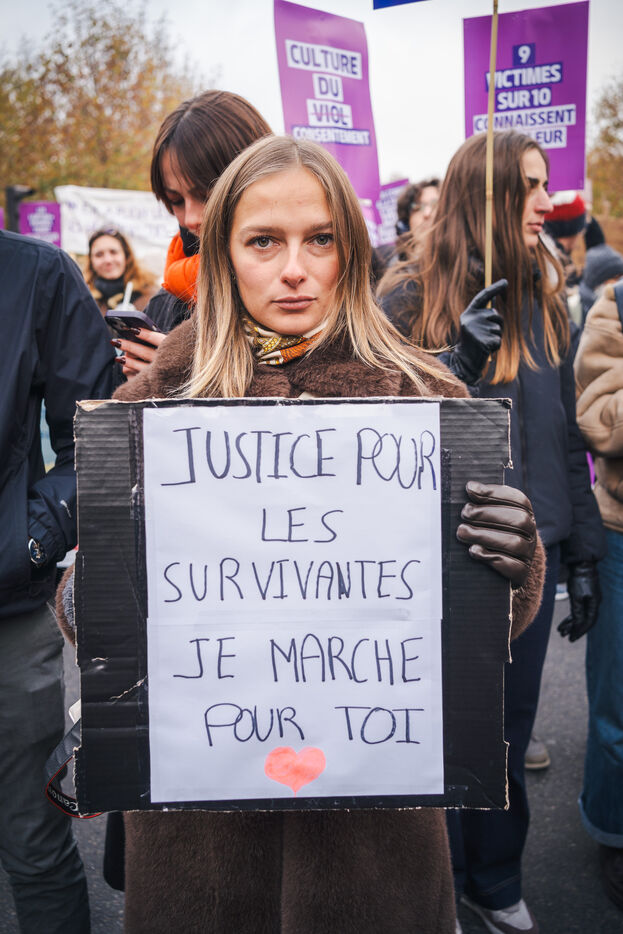 CULTURE
DU
VIOL
CONSENTEMENT
9
VICTIMES
SUR 10
CONNAISSENT
JUSTICE POUR
LES
SURVIVANTES
JE MARCHE
POUR TOI